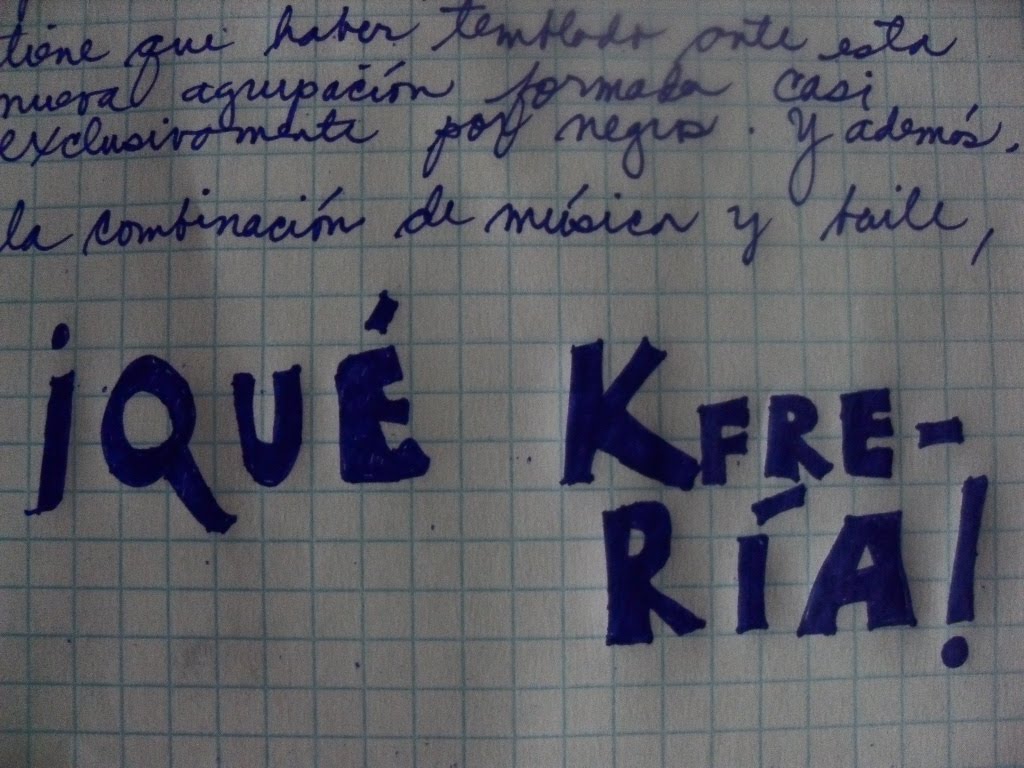 tiene que haber temblado ante esta
nueva agrupación formada casi
exclusivamente por negros. Y además,
la combinación de música y baile,
¡QUÉ KFRE-
RÍA!